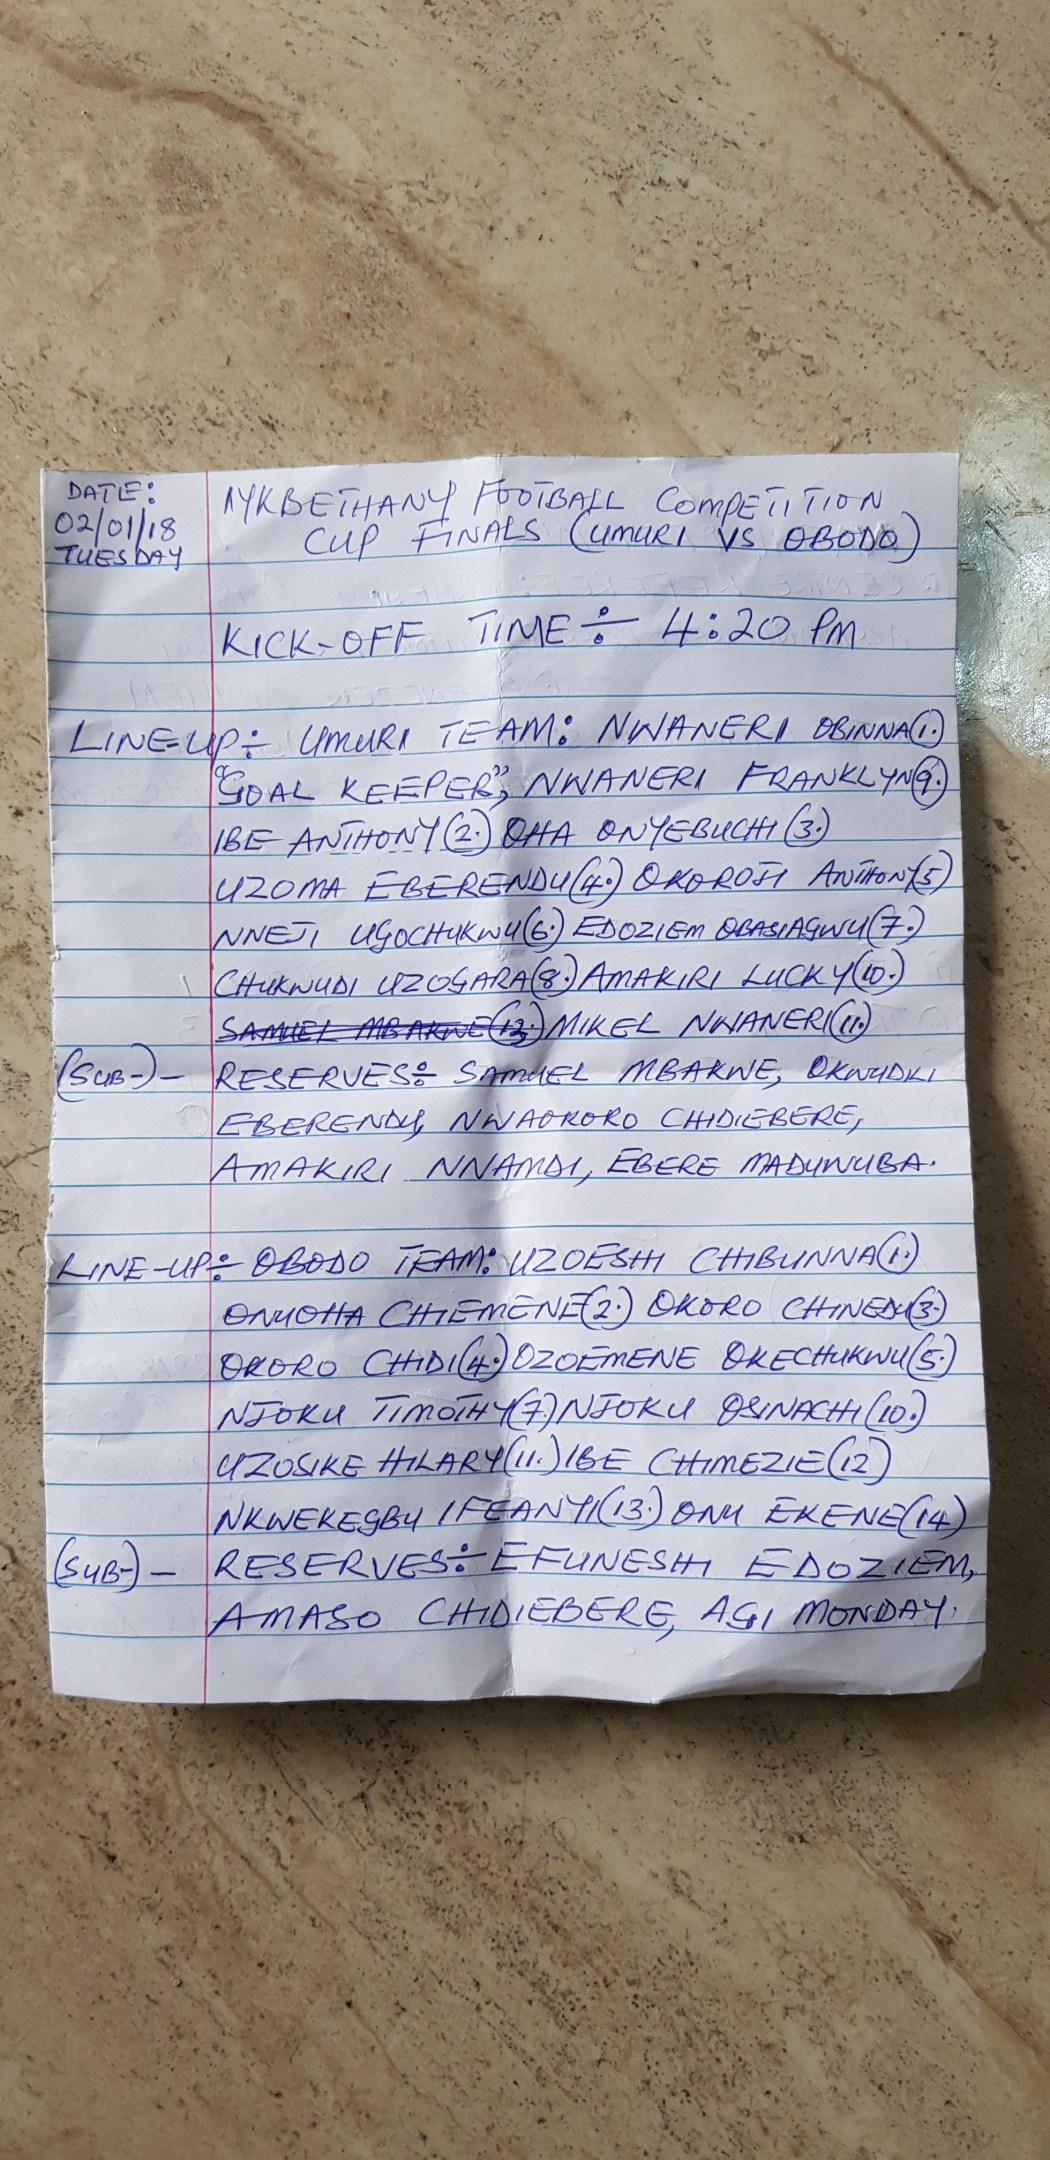 DATE:
02/01/18
TUESDAY
AYKBETHANY FOOTBALL COMPETITION
CUP FINALS (UMURI VS OBODO)
KICK-OFF TIME ÷ 4:20 PM
LINE-UP ÷ UMURI TEAM: NWANERI OBINNA (1.)
"GOAL KEEPER", NWANERI FRANKLYN (9.)
IBE ANTHONY (2.) OHA ONYEBUCHI (3.)
UZOMA EBERENDU (4.) OKOROJI ANTHONY (5)
NNEJI UGOCHUKWU (6.) EDOZIEM OBASIAGWU (7.)
CHUKWUDI UZOGARA (8.) AMAKIRI LUCKY (10.)
SAMUEL MBAKWE (12.) MIKEL NWANERI (11.)
(SUB-) - RESERVES ÷ SAMUEL MBAKWE, OKWUDILI
EBERENDU, NWAOKORO CHIDIEBERE,
AMAKIRI NNAMDI, EBERE MADUWUBA.
LINE-UP ÷ OBODO TEAM: UZOESHI CHIBUNNA (1.)
ONUOHA CHIEMENE (2.) OKORO CHINEDU (3.)
OKORO CHIDI (4.) OZOEMENE OKECHUKWU (5.)
NJOKU TIMOTHY (7.) NJOKU OSINACHI (10.)
UZOSIKE HILARY (11.) IBE CHIMEZIE (12)
NKWEKEGBU IFEANYI (13.) ONU EKENE (14)
(SUB-) - RESERVES ÷ EFUNESHI EDOZIEM,
AMASO CHIDIEBERE, AGI MONDAY.